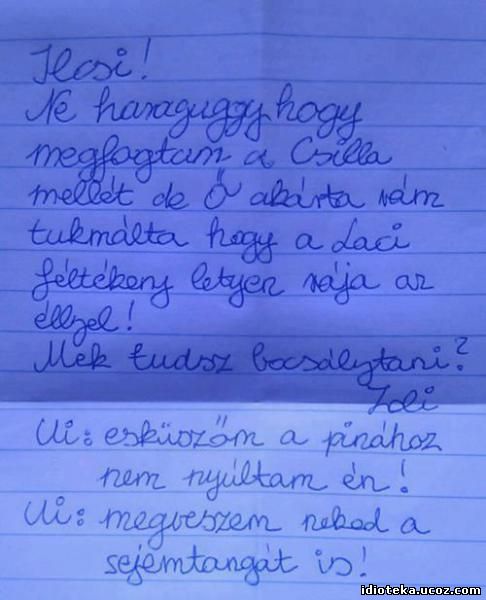 Ilcsi!
Ne haraguggy hogy
megfogtam a Csilla
mellét de Ő akárta rám
tukmálta hogy a Laci
féltékeny letyen rája az
éllzel!
Mek tudsz bocsálytani?
Zoli
Ui: esküszöm a pinához
nem nyúltam én!
Ui: megveszem neked a
sejemtangát is!
idioteka.ucoz.com